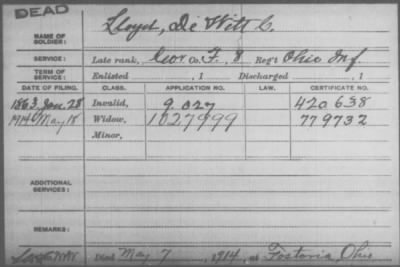 DEAD
NAME OF SOLDIER: Lloyd, De Witt C.
SERVICE: Late rank, Cor Co. F, 8 Reg't Ohio Inf
TERM OF SERVICE: Enlisted , 1 Discharged , 1
DATE OF FILING. CLASS. APPLICATION NO. LAW. CERTIFICATE NO.
1863 Jan. 28 Invalid, 9.027 420638
1914 May 18 Widow, 1027999 779732
Minor,
ADDITIONAL SERVICES:
REMARKS:
Died May 7, 1914, at Fostoria, Ohio